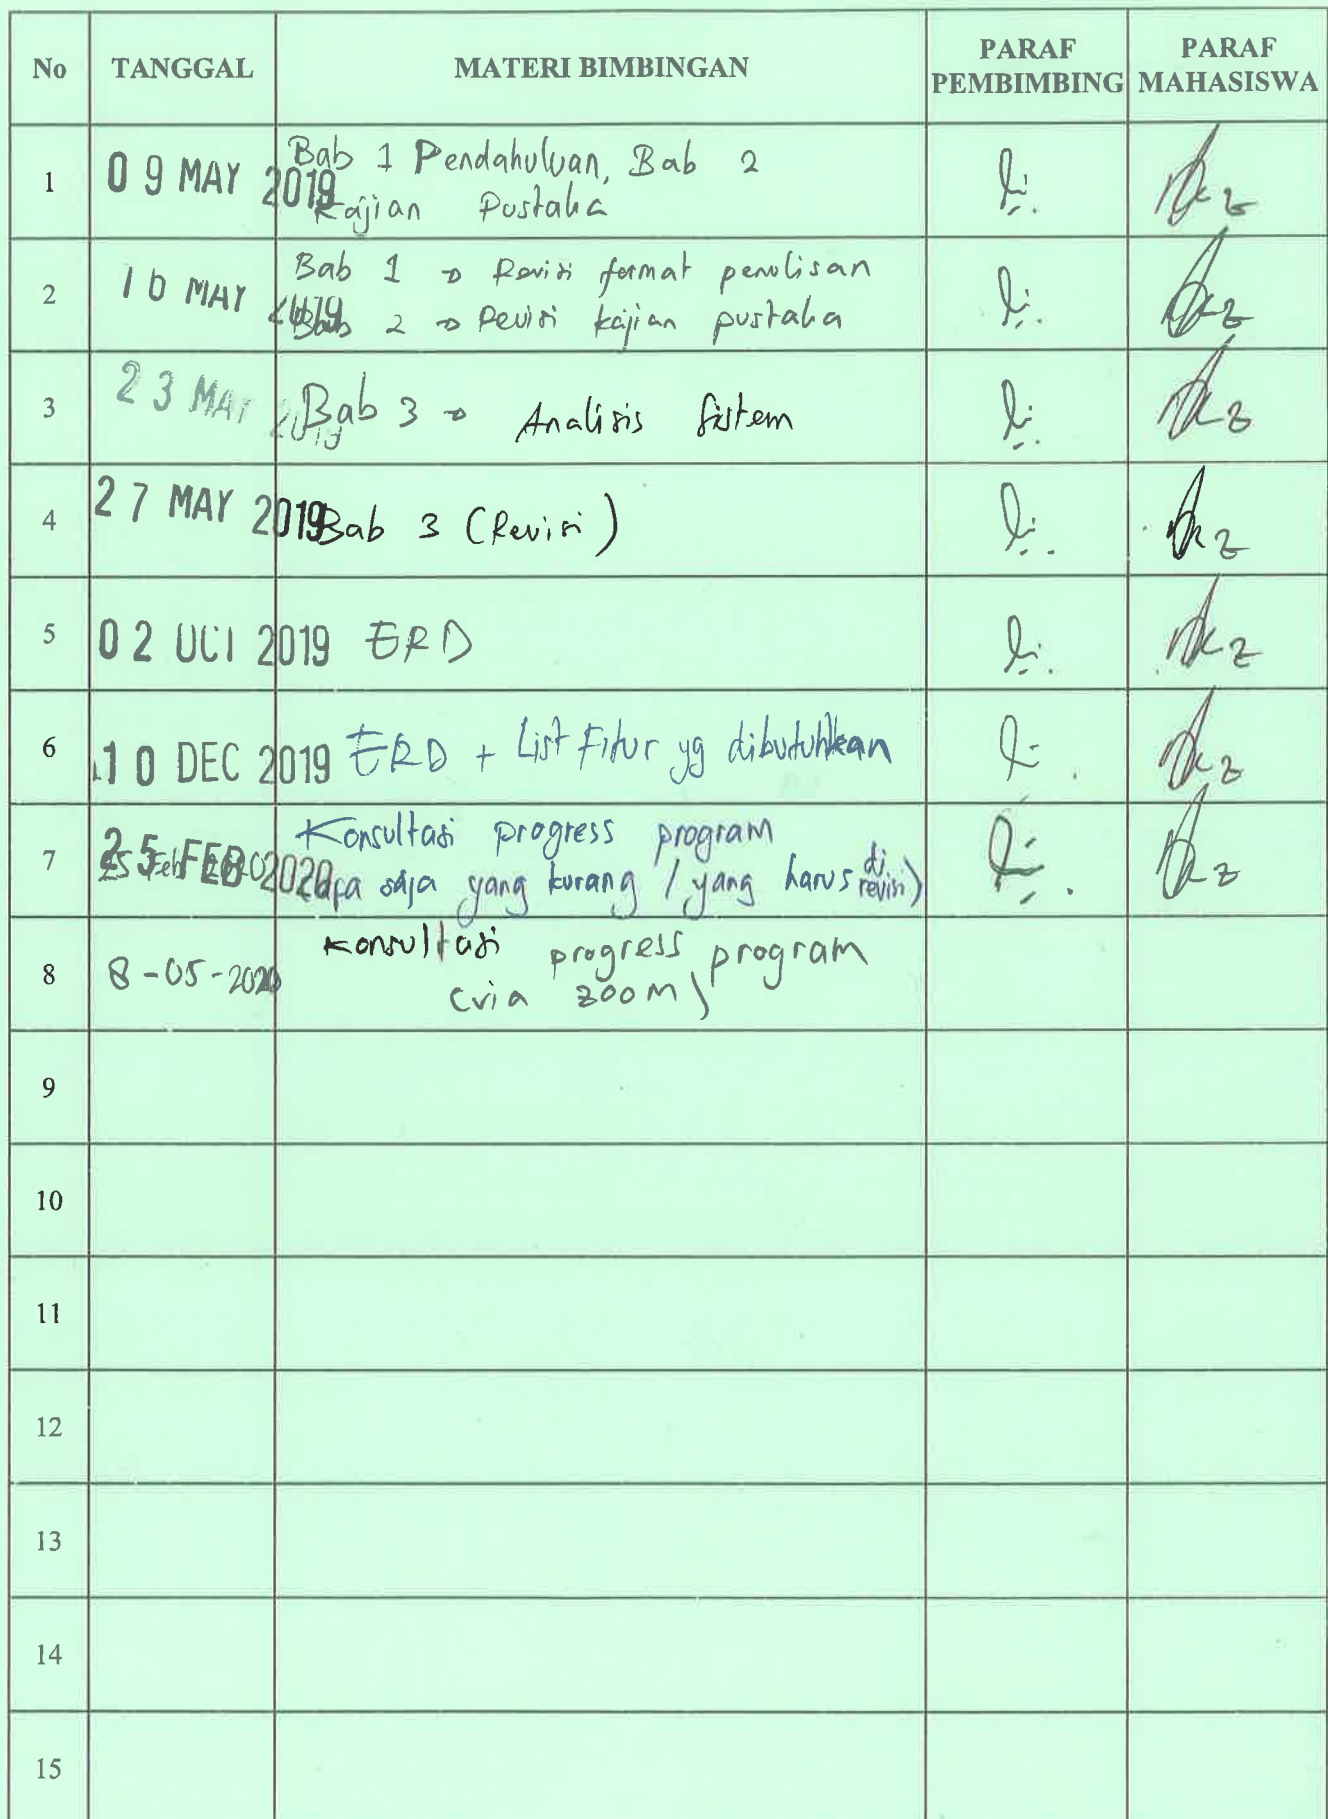 No TANGGAL MATERI BIMBINGAN PARAF PEMBIMBING PARAF MAHASISWA
1 09 MAY 2019 Bab 1 Pendahuluan, Bab 2
Kajian Pustaka
2 10 MAY 2019 Bab 1 → Revisi format penulisan
Bab 2 → Revisi kajian pustaka
3 23 MAY 2019 Bab 3 → Analisis Sistem
4 27 MAY 2019 Bab 3 (Revisi)
5 02 OCT 2019 ERD
6 10 DEC 2019 ERD + List Fitur yg dibutuhkan
7 25 FEB 2020 Konsultasi progress program
apa saja yang kurang / yang harus di revisi)
8 8-05-2020 Konsultasi progress program
(via zoom)
9
10
11
12
13
14
15